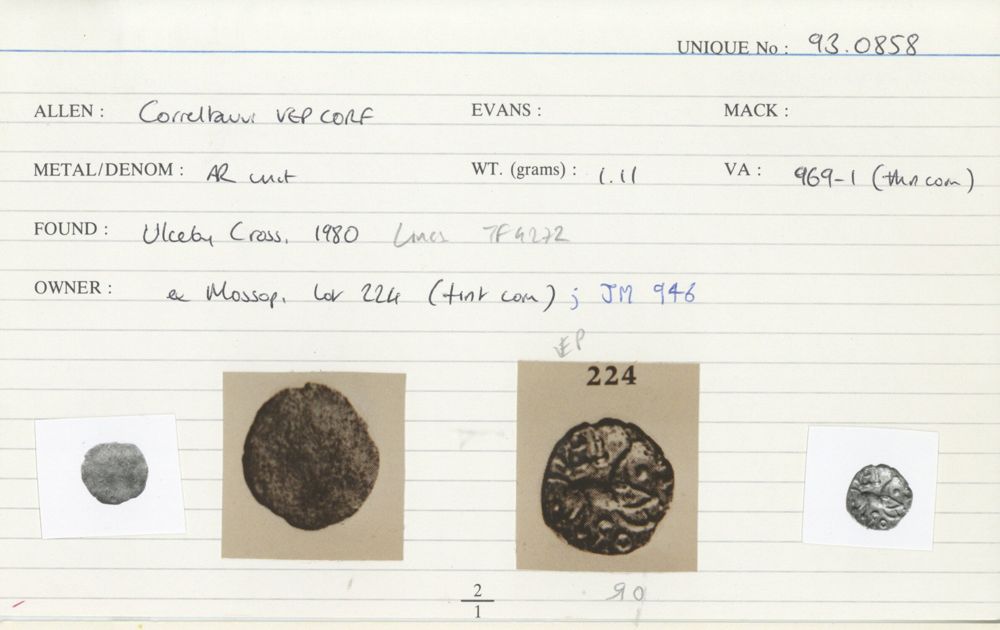 UNIQUE No : 93.0858
ALLEN : Correltauvi VEP CORF EVANS : MACK :
METAL/DENOM : AR unit WT. (grams) : 1.11 VA : 969-1 (this com)
FOUND : Ulceby Cross, 1980 Lincs TF4272
OWNER : ex Mossop, lot 224 (this com) ; JM 946
EP
224
2
1